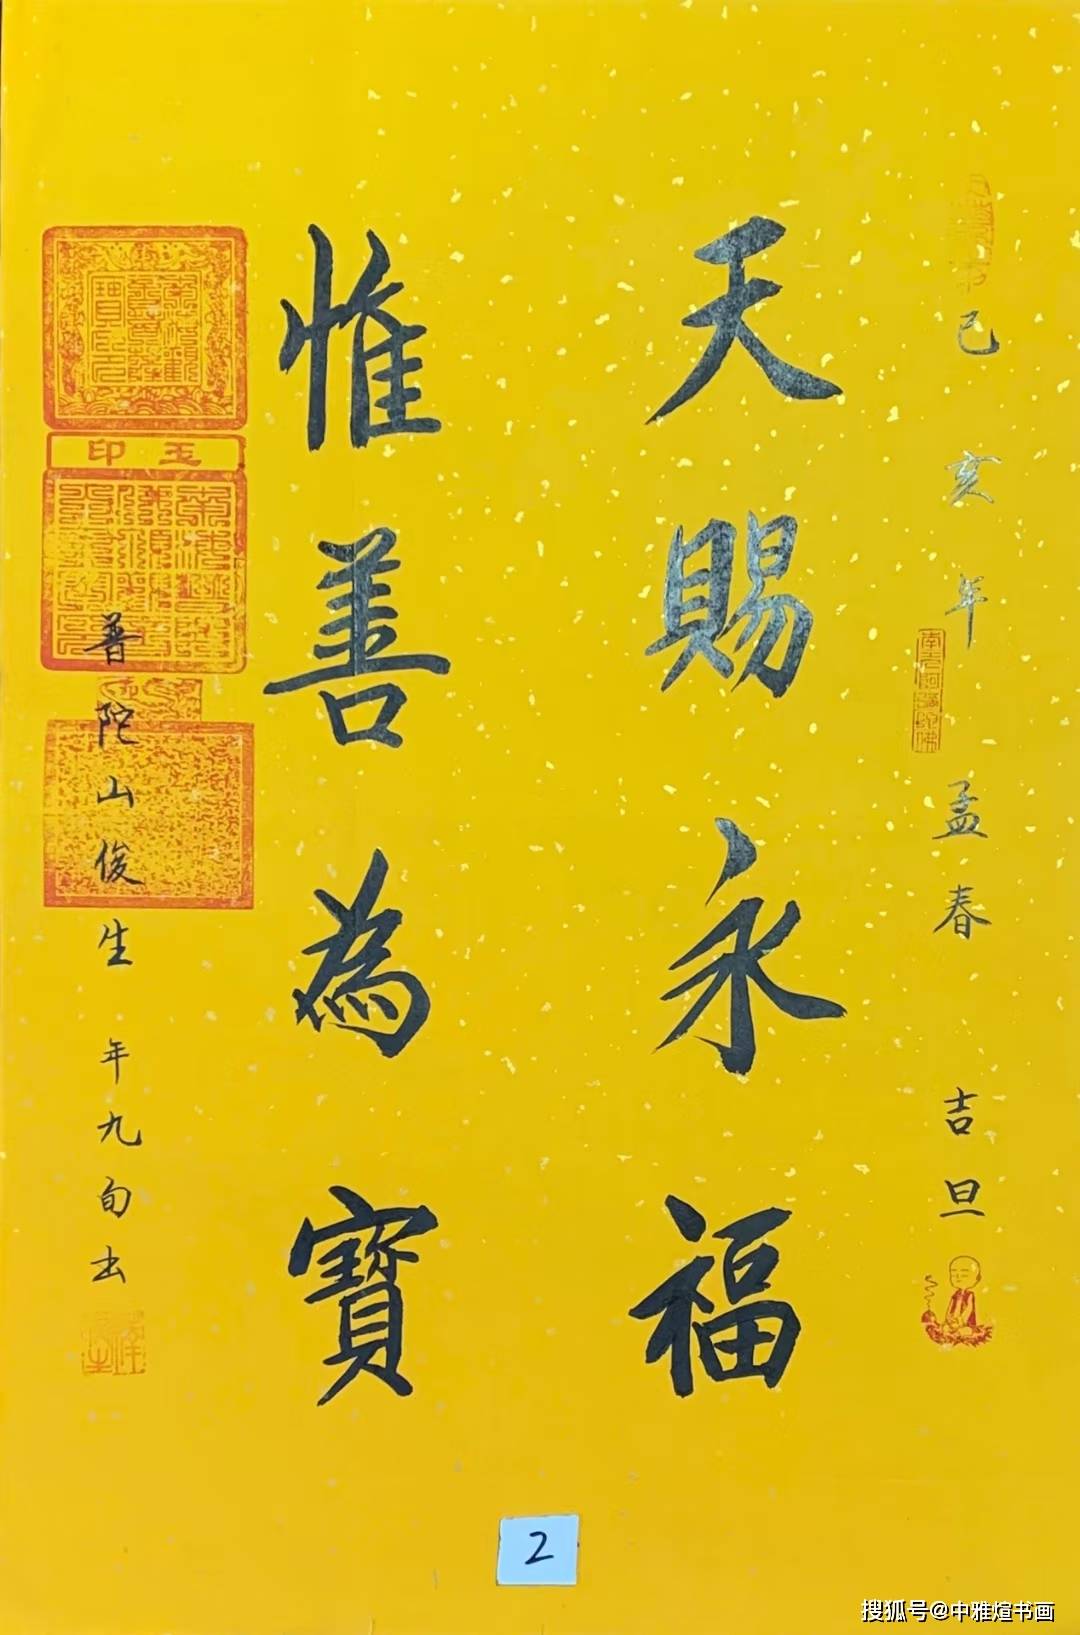 己亥年 孟春 吉旦
天賜永福
惟善為寶
普陀山俊生 年九旬书
南无阿弥陀佛
玉印
2
搜狐号@中雅煊书画